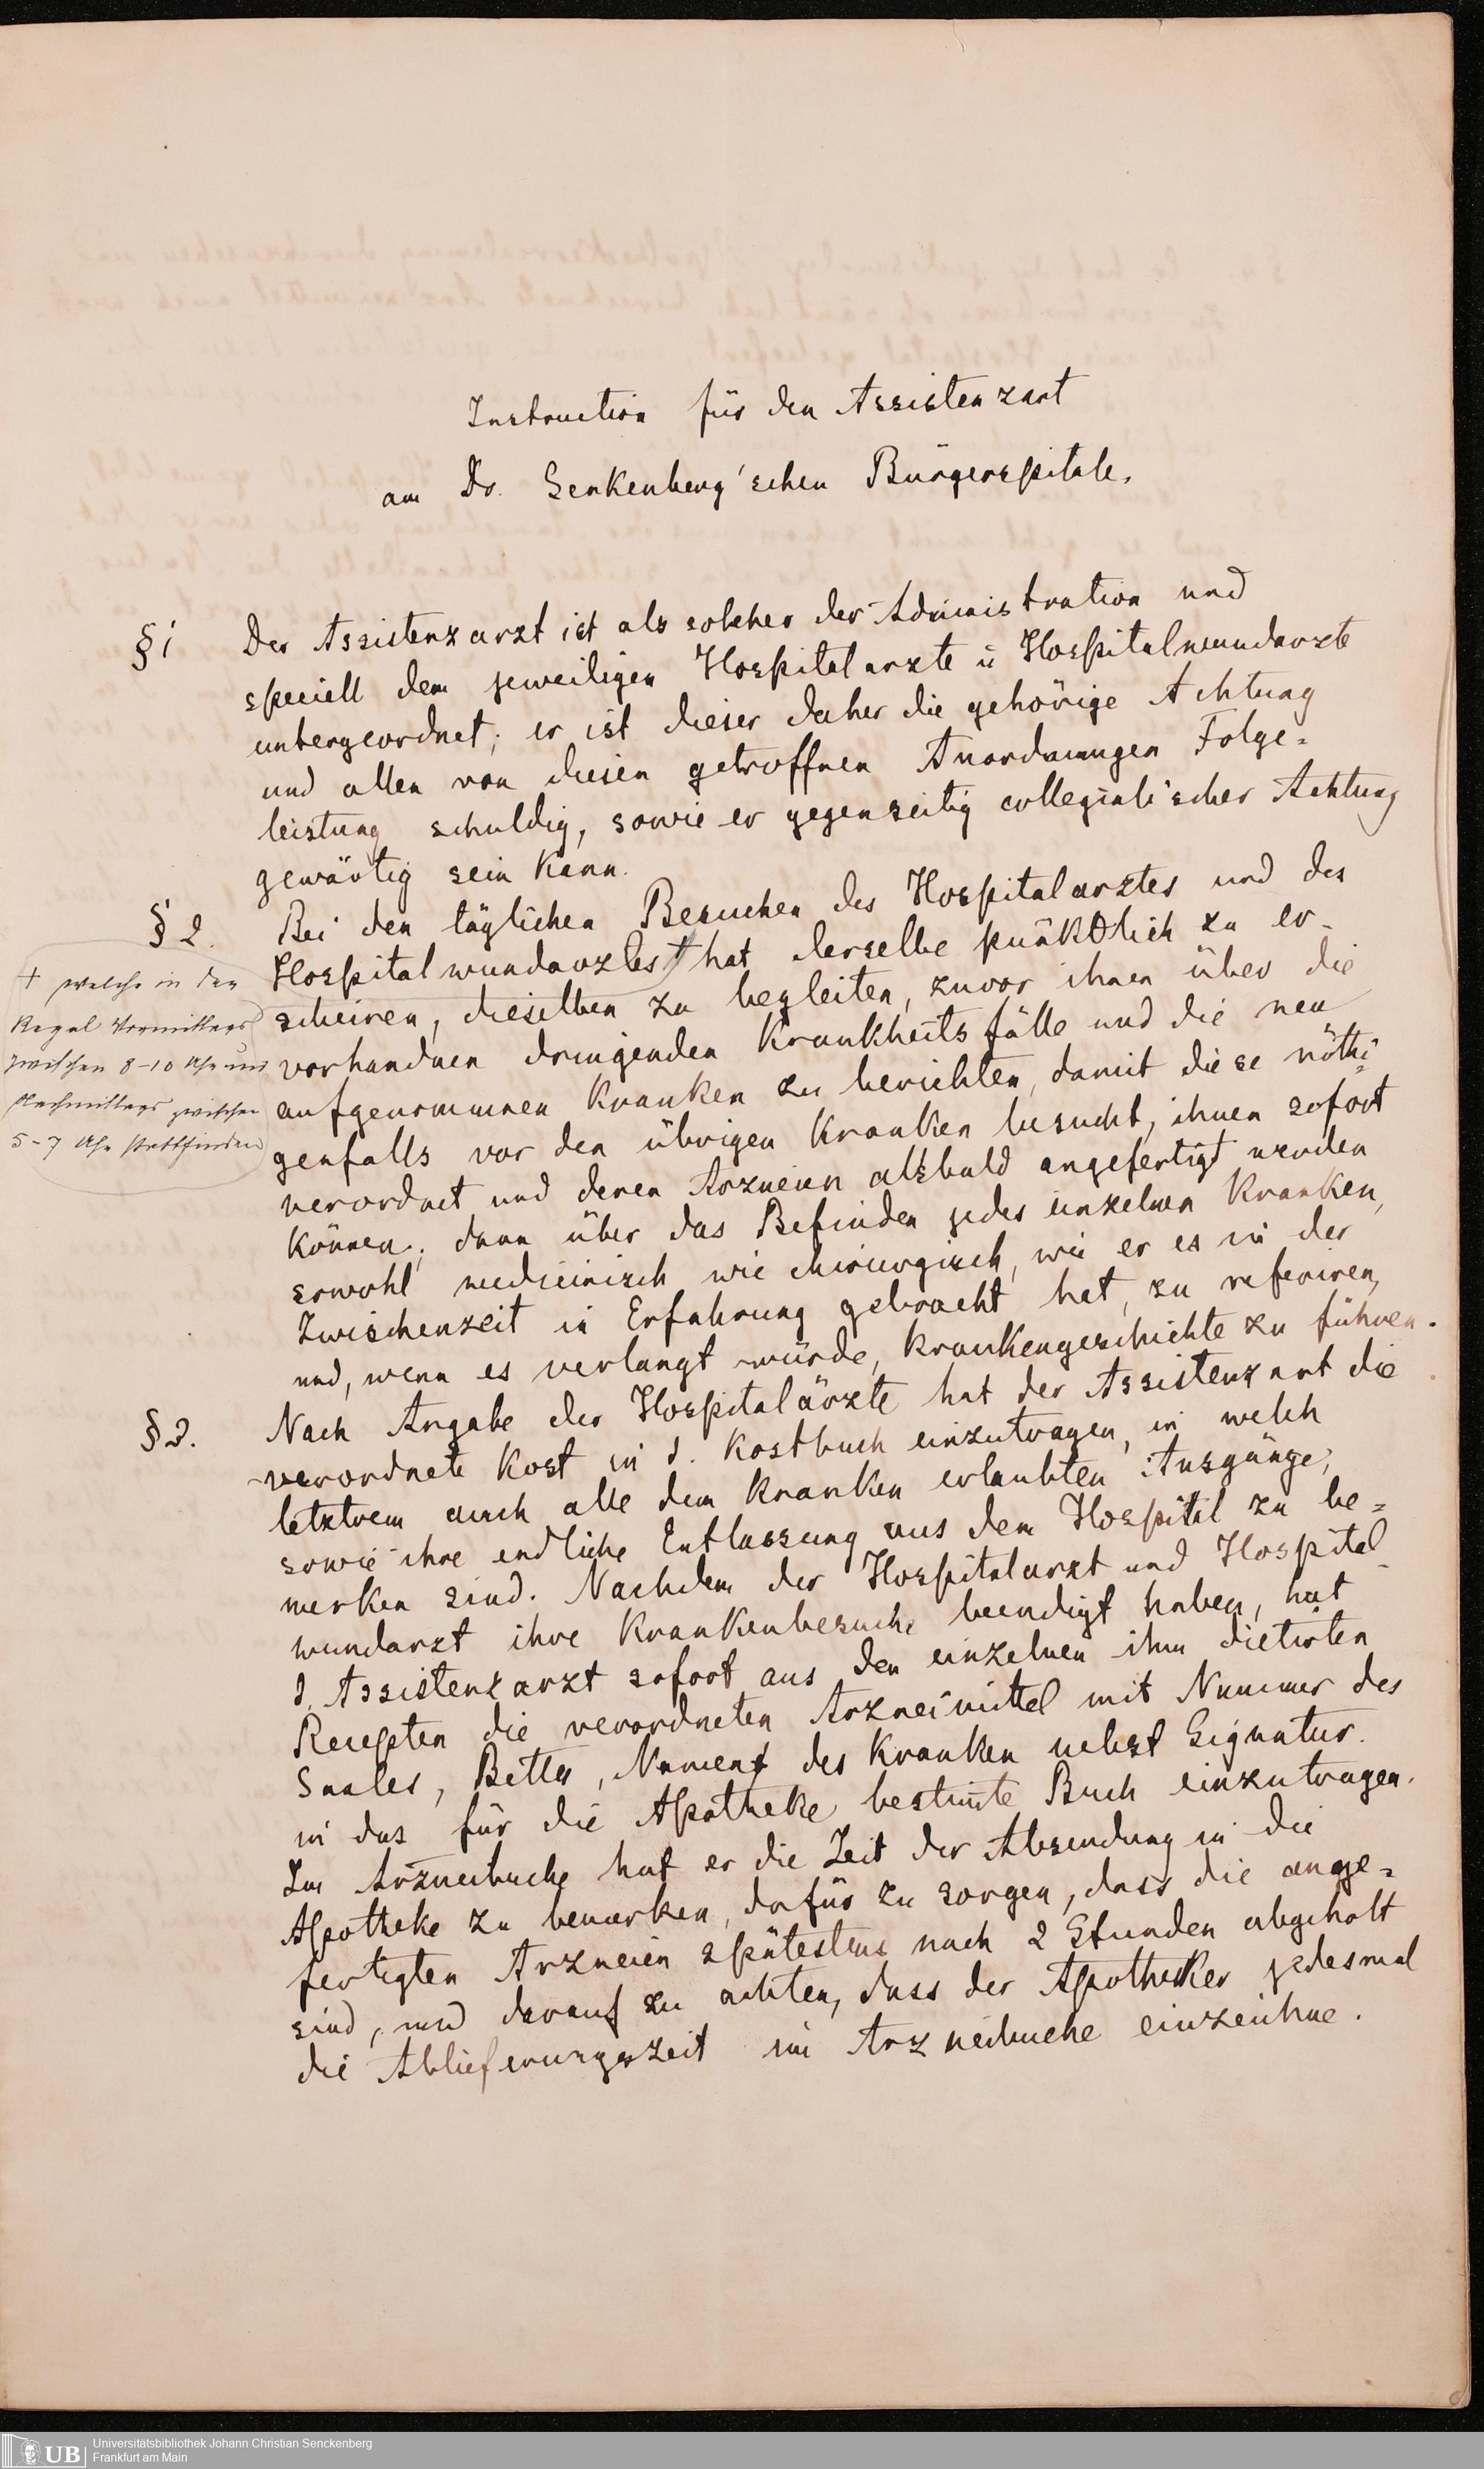 Instruction für den Assistenzart
am Dr. Senkenberg'schen Bürgerspitale.
§ 1 Der Assistenzarzt ist als solcher der Administration und
speciell dem jeweiligen Hospitalarzte u Hospitalwundarzte
untergeordnet; er ist dieser daher die gehörige Achtung
und allen von diesen getroffnen Anordnungen Folge=
leistung schuldig, sowie er gegenseitig collegialischer Achtung
gewärtig sein kann.
§ 2. Bei den täglichen Besuchen des Hospitalarztes und des
Hospitalwundarztes + hat derselbe pünktlich zu er-
scheinen, dieselben zu begleiten, zuvor ihnen über die
vorhandnen dringenden Krankheitsfälle und die neu
aufgenommnen Kranken zu berichten, damit diese nöthi=
genfalls vor den übrigen Kranken besucht, ihnen sofort
verordnet und deren Arzneien alsbald angefertigt werden
können; dann über das Befinden jedes einzelnen Kranken,
sowohl medicinisch wie chirurgisch, wie er es in der
Zwischenzeit in Erfahrung gebracht hat, zu referiren,
und, wenn es verlangt würde, Krankengeschichte zu führen.
+ welche in der
Regel Vormittags
zwischen 8-10 Uhr und
Nachmittags zwischen
5-7 Uhr stattfinden
§ 3. Nach Angabe der Hospitalärzte hat der Assistenzart die
verordnete Kost in d. Kostbuch einzutragen, in welch
letztrem auch alle dem Kranken erlaubten Ausgänge,
sowie ihre endliche Entlassung aus dem Hospital zu be=
merken sind. Nachdem der Hospitalarzt und Hospital-
wundarzt ihre Krankenbesuche beendigt haben, hat
d. Assistenzarzt sofort aus den einzelnen ihm dictirten
Recepten die verordneten Arzneimittel mit Nummer des
Saales, Bettes, Namens des Kranken nebst Signatur
in das für die Apotheke bestimte Buch einzutragen.
Im Arzneibuche hat er die Zeit der Absendung in die
Apotheke zu bemerken, dafür zu sorgen, dass die ange=
fertigten Arzneien spätestens nach 2 Stunden abgeholt
sind, und darauf zu achten, dass der Apotheker jedesmal
die Ablieferungszeit im Arzneibuche einzeichne.
UB Universitätsbibliothek Johann Christian Senckenberg
Frankfurt am Main